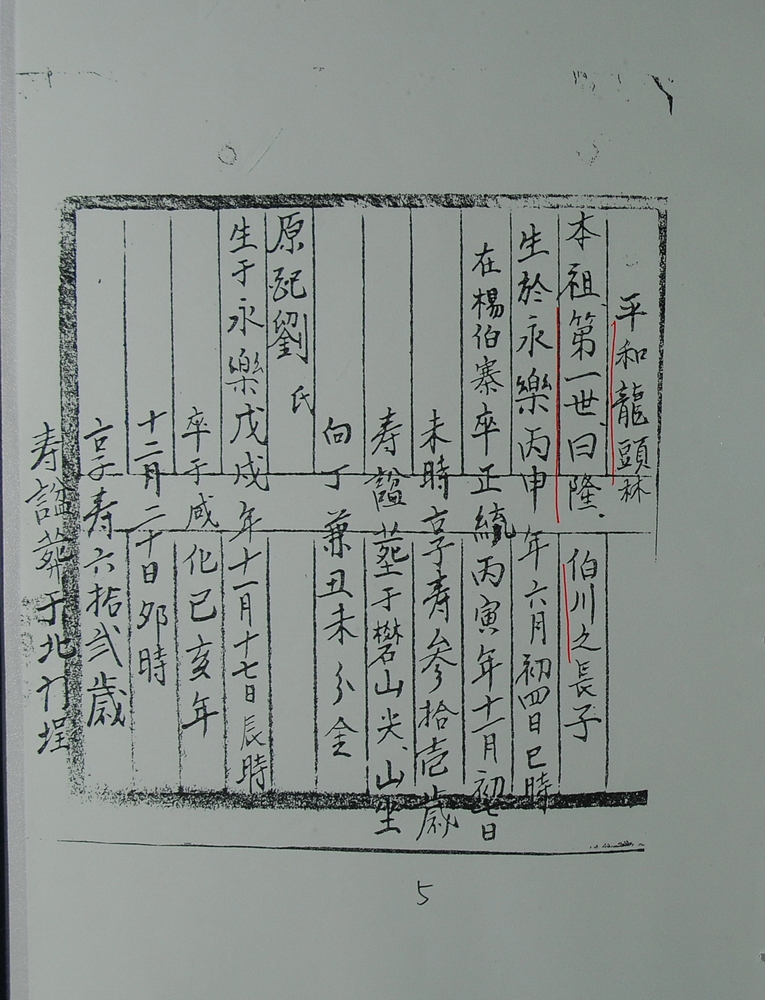 平和龍頭林
本祖第一世曰隆伯川之長子
生於永樂丙申年六月初四日巳時
在楊伯寨卒正統丙寅年十一月初七日
未時享壽參拾壱歲
寿諡塟于礬山尖山坐
向丁兼丑未分金
原配劉氏
生于永樂戊戌年十一月十七日辰時
卒于咸化己亥年
十二月二十日夘時
享寿六拾弍歲
寿諡葬于北行埕
5